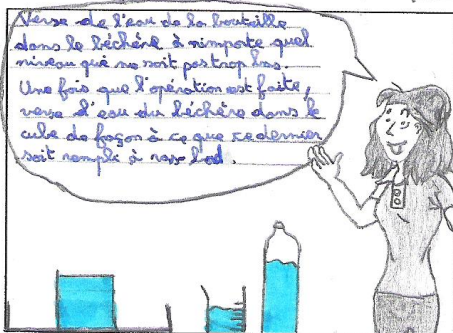 Verse de l'eau de la bouteille
dans le béchère à nimporte quel
niveau qui ne soit pas trop bas.
Une fois que l'opération est faite,
verse d'eau du béchère dans le
cube de façon à ce que ce dernier
soit rempli à ras bod.